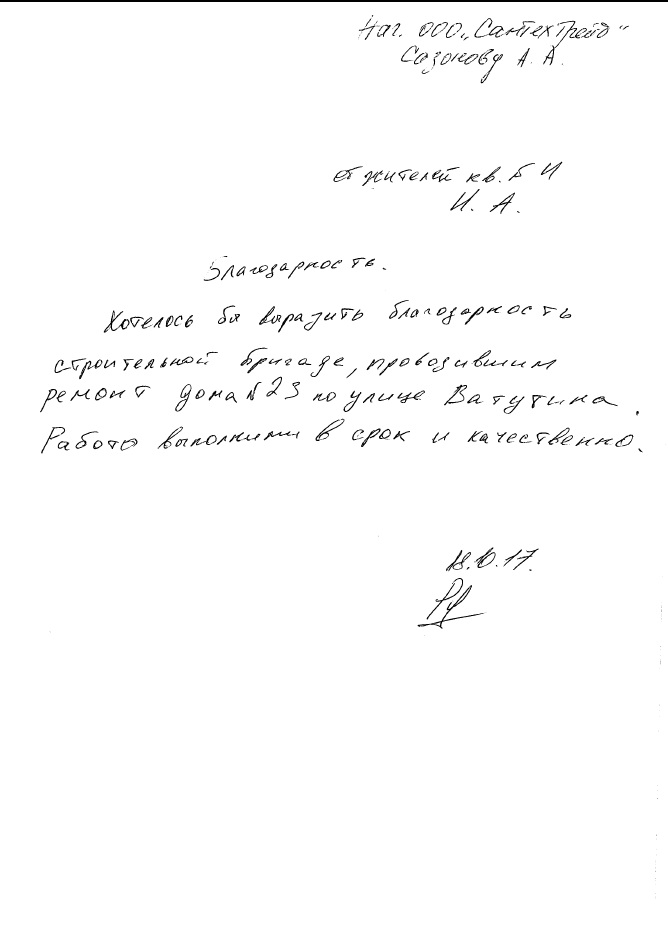 Нач. ООО „СантехТрейд"
Сазонову А. А.
от жителей кв. Б И
И. А.
Благодарность.
Хотелось бы выразить благодарность
строительной бригаде, проводившим
ремонт дома №23 по улице Ватутина.
Работы выполнили в срок и качественно.
18.10.17.